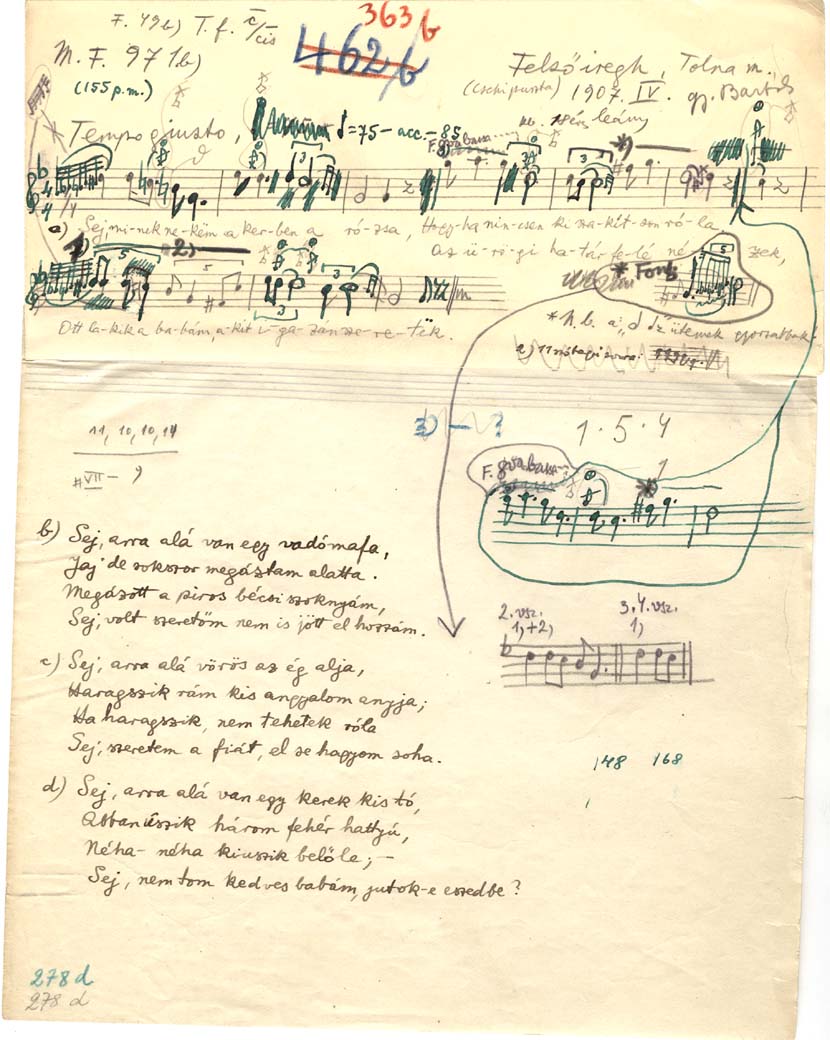 363 b
F. 49b) T. f. c/cis
462/b
M. F. 971b)
Felsőiregh, Tolna m.,
(155 p.m.)
(Csehi puszta) 1907. IV. gy. Bartók
Tempo giusto, ♩=75 - acc. - 85
a) Sej, mi-nek ne-kem a ker-ben a ró-zsa, Hogy-ha nin-csen ki sza-kit-son ró-la
Az ü-rö-gi ha-tár fe-lé né zek,
1) 2)
* Fonb
Ott la-kik a ba-bám, a-kit i-ga-zán sze-re-tek.
11, 10, 10, 14
#VII – 9
1 · 5 · 4
F. 8va bassa
b) Sej, arra alá van egy vadómafa,
Jaj de sokszor megáztam alatta.
Megázott a piros bécsi szoknyám,
Sej, volt szeretőm nem is jött el hozzám.
2. vsz.
1,+2)
3. 4. vsz.
1)
c) Sej, arra alá vörös az ég alja,
Haragszik rám kis angyalom anyja;
Ha haragszik, nem tehetek róla
Sej, szeretem a fiát, el se hagyom soha.
148 168
d) Sej, arra alá van egy kerek kis tó,
Abban úszik három fehér hattyú,
Néha-néha kiuszik belőle; –
Sej, nem tom kedves babám, jutok-e eszedbe?
278 d
278 d